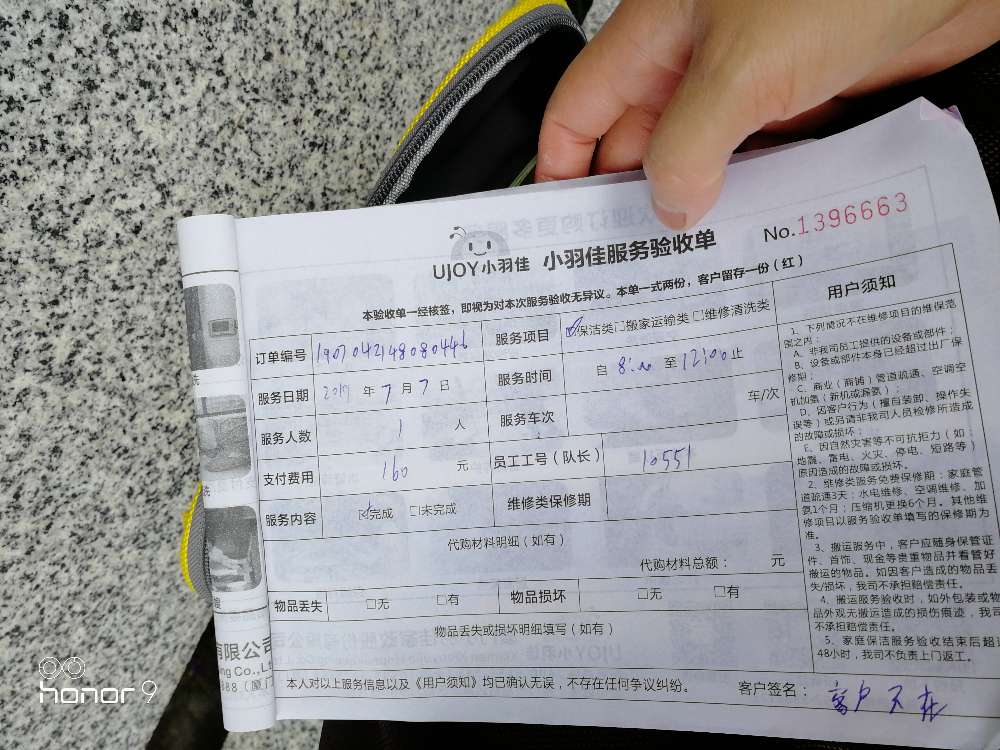 No.1396663
UJOY小羽佳 小羽佳服务验收单
本验收单一经核签，即视为对本次服务验收无异议。本单一式两份，客户留存一份（红）
订单编号 190704214808044б
服务项目 ☑保洁类□搬家运输类□维修清洗类
服务日期 2019 年 7 月 7 日
服务时间 自 8:00 至 12:00 止
服务人数 1 人
服务车次 车/次
支付费用 160 元
员工工号（队长） 10551
服务内容 ☑完成 □未完成
维修类保修期
代购材料明细（如有）
代购材料总额： 元
物品丢失 □无 □有
物品损坏 □无 □有
物品丢失或损坏明细填写（如有）
本人对以上服务信息以及《用户须知》均已确认无误，不存在任何争议纠纷。
客户签名： 客户不在
用户须知
1、下列情况不在维修项目的维保范
围之内：
A、非我司员工提供的设备或部件；
B、设备或部件本身已经超过出厂保
修期；
C、商业（商铺）管道疏通、空调空
机加氨（新机或漏氨）；
D、因客户行为（擅自装卸、操作失
误等）或另请非我司人员检修所造成
的故障或损坏；
E、因自然灾害等不可抗拒力（如：
地震、雷电、火灾、停电、短路等）
原因造成的故障或损坏。
2、维修类服务免费保修期：家庭管
道疏通3天；水电维修、空调维修、加
氨1个月；压缩机更换6个月。其他维
修项目以服务验收单填写的保修期为
准。
3、搬运服务中，客户应随身保管证
件、首饰、现金等贵重物品并看管好
搬运的物品。如因客户造成的物品丢
失/损坏，我司不承担赔偿责任。
4、搬运服务验收时，如外包装或物
品外观无搬运造成的损伤痕迹，我司
不承担赔偿责任。
5、家庭保洁服务验收结束后超过
48小时，我司不负责上门返工。
有限公司
ng Co.,Lt
888（厦门
honor 9